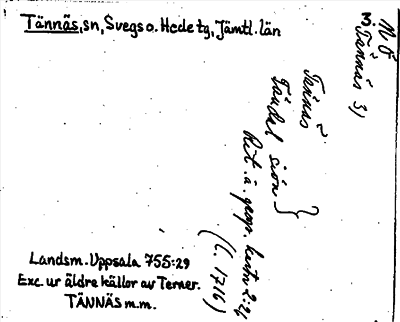 Tännäs, sn, Svegs o. Hede tg, Jämtl. län
3.
N Ö
Tännäs 3)
Tännäs
Tändal sión }
Rit. ä. geogr. kartv 2:
(C. 1716)
Landsm. Uppsala 755:29
Exc. ur äldre källor av Terner.
TÄNNÄS m.m.